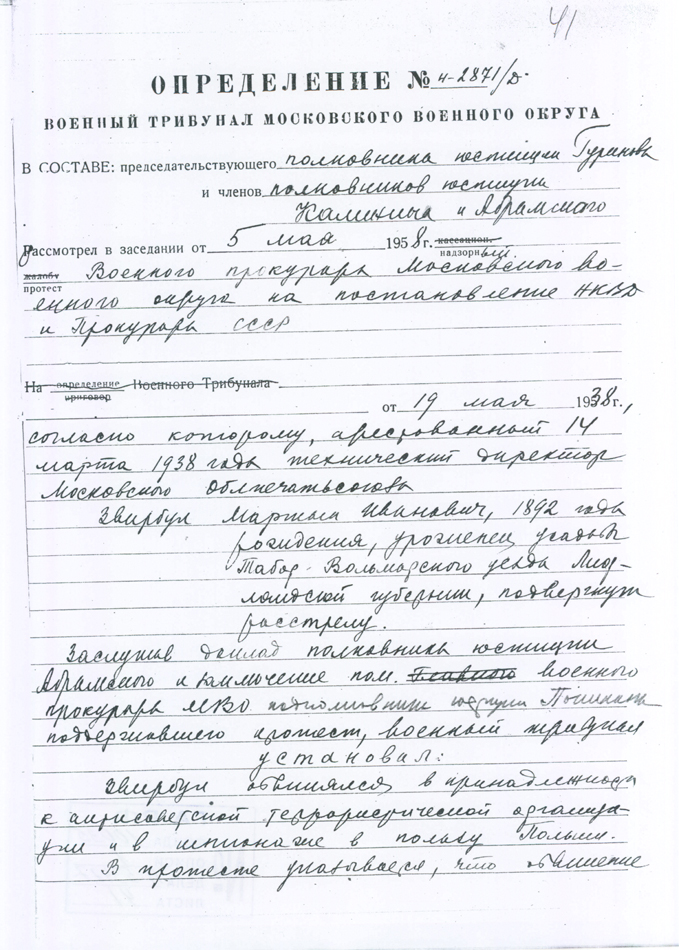 41
ОПРЕДЕЛЕНИЕ № н-2871/Д
ВОЕННЫЙ ТРИБУНАЛ МОСКОВСКОГО ВОЕННОГО ОКРУГА
В СОСТАВЕ: председательствующего полковника юстиции Гуринова
и членов полковников юстиции
Калинина и Абрамского
Рассмотрел в заседании от 5 мая 1958 г. кассацион.
надзорный
жалобу Военного прокурора Московского во-
протест
енного округа на постановление НКВД
и Прокурора СССР
На определение Военного Трибунала
приговор
от 19 мая 1938 г.,
согласно которому, арестованный 14
марта 1938 года технический директор
Московского Облпечатьсоюза
Звирбул Мартын Иванович, 1892 года
рождения, уроженец усадьбы
Табор-Вольмарского уезда Лиф-
ляндской губернии, подвергнут
расстрелу.
Заслушав доклад полковника юстиции
Абрамского и заключение пом. Главного военного
прокурора МВО подполковника юстиции
поддержавшего протест, военный трибунал
установил:
Звирбул обвинялся в принадлежности
к антисоветской террористической организа-
ции и в шпионаже в пользу Польши.
В протесте указывается, что обвинение